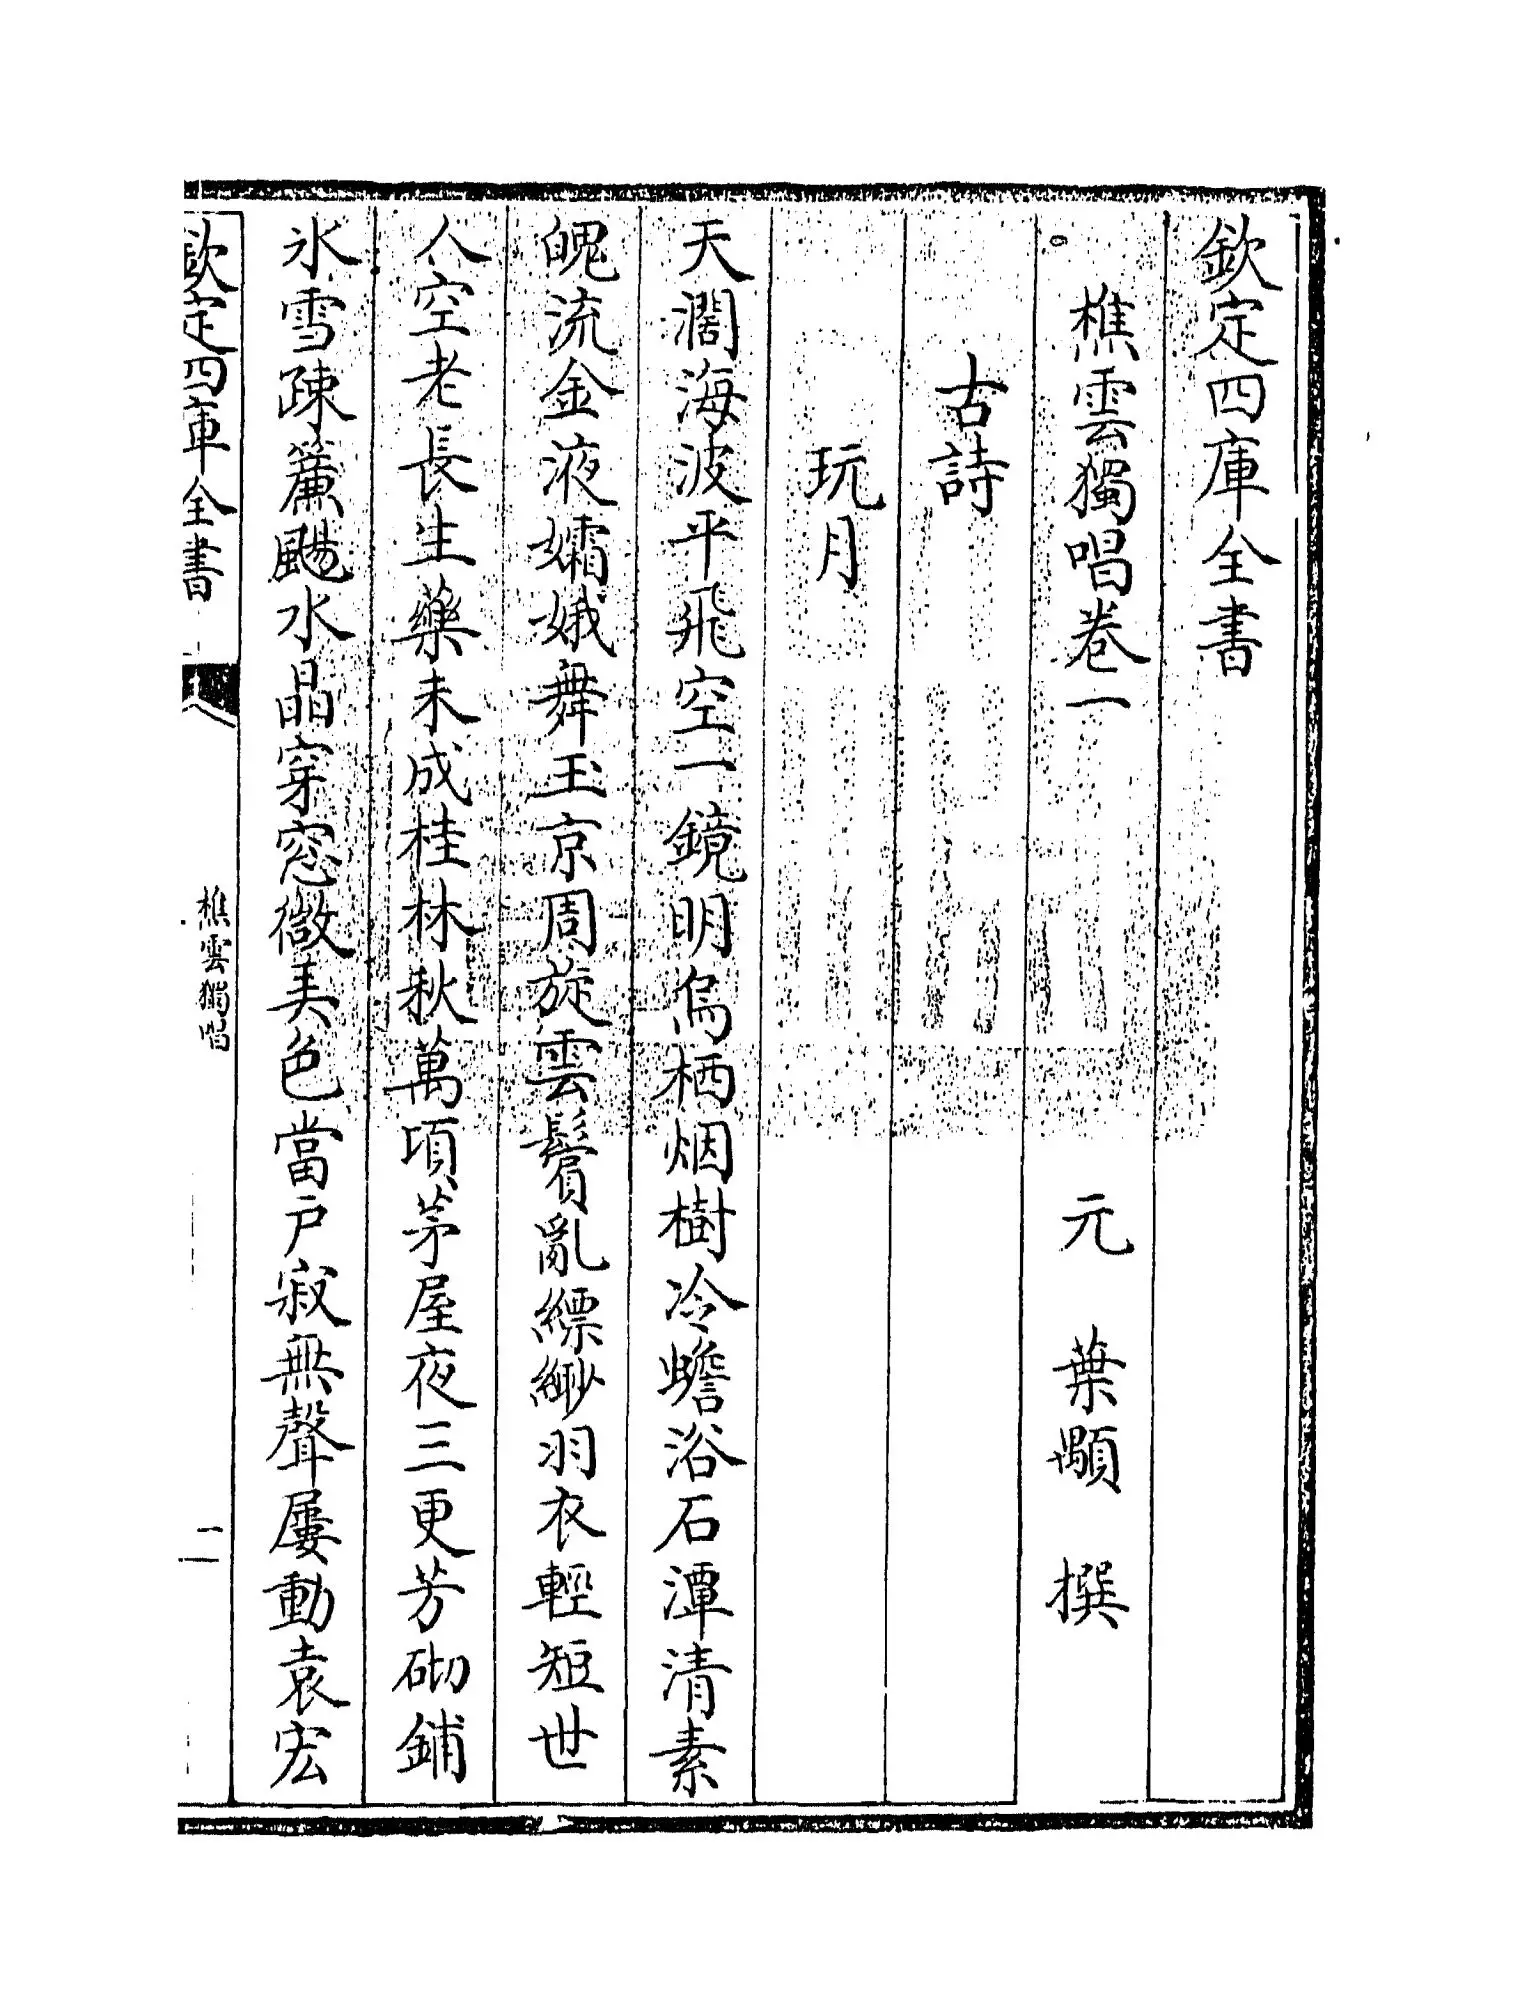 欽定四庫全書
樵雲獨唱卷一
元　葉顒　撰
古詩
玩月
天濶海波平飛空一鏡明烏栖烟樹冷蟾浴石潭清素
魄流金液孀娥舞玉京周旋雲鬢亂縹緲羽衣輕短世
人空老長生藥未成桂林秋萬頃茅屋夜三更芳砌鋪
氷雪疎簾颺水晶穿窓微美色當户寂無聲屢動袁宏
欽定四庫全書
樵雲獨唱
一